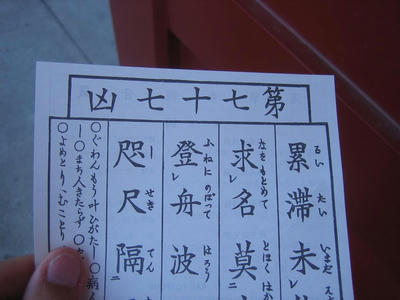 第七十七凶
累滞未
るい たい いまだ
求レ名莫二
なをもとめて とほくはか
登レ舟波
ふねに のぼつて はろう
咫尺隔二
し せき てん
○ぐわんもう叶ひがたし○病
し○まち人きたらず○
○よめとり